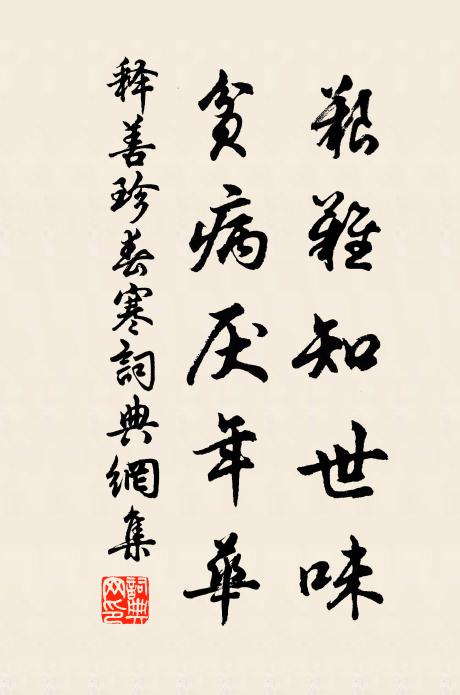 艱難知世味
貧病厌年華
释善珍春寒詞典網集
詞典网印